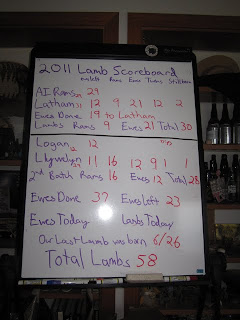 2011 Lamb Scoreboard
ewes left Rams Ewes Twins Stillborn
AI Rams 29
Latham 11 12 9 21 12 2
Ewes Done 19 to Latham
Lambs Rams 9 Ewes 21 Total 30
Logan 12
Llywelyn 24 11 16 12 9 1 1
2nd Batch Rams 16 Ewes 12 Total 28
Ewes Done 37 Ewes left 23
Ewes Today Lambs Today
Our Last Lamb was born 6/26
Total Lambs 58